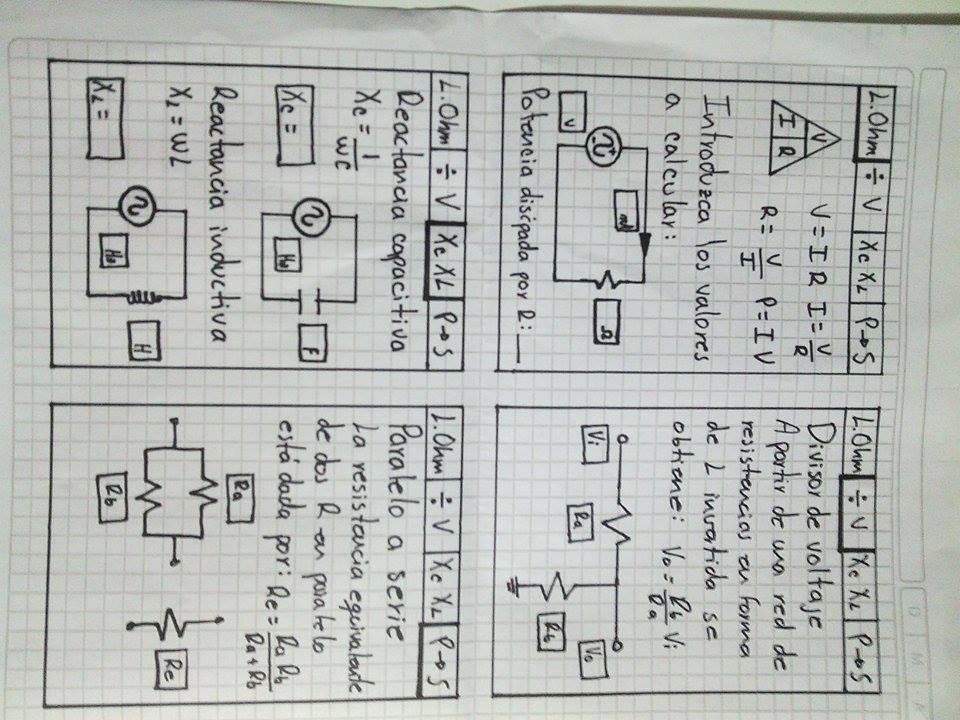 D M A
L.Ohm ÷ V Xc XL P→S
V
I R
V = I R I = V/R
R = V/I P = I V
Introduzca los valores
a calcular:
mA
Ω
V
Potencia disipada por R: __
L.Ohm ÷ V Xc XL P→S
Divisor de voltaje
A partir de una red de
resistencias en forma
de L invertida se
obtiene: Vo = Rb/Ra Vi
Vi Ra Vo
Rb
L.Ohm ÷ V Xc XL P→S
Reactancia capacitiva
Xc = 1/WC
Xc =
Hz F
Reactancia inductiva
XL = WL
XL =
Hz H
L.Ohm ÷ V Xc XL P→S
Paralelo a serie
La resistencia equivalente
de dos R en paralelo
está dada por: Re = Ra Rb/Ra+Rb
Ra
Re
Rb